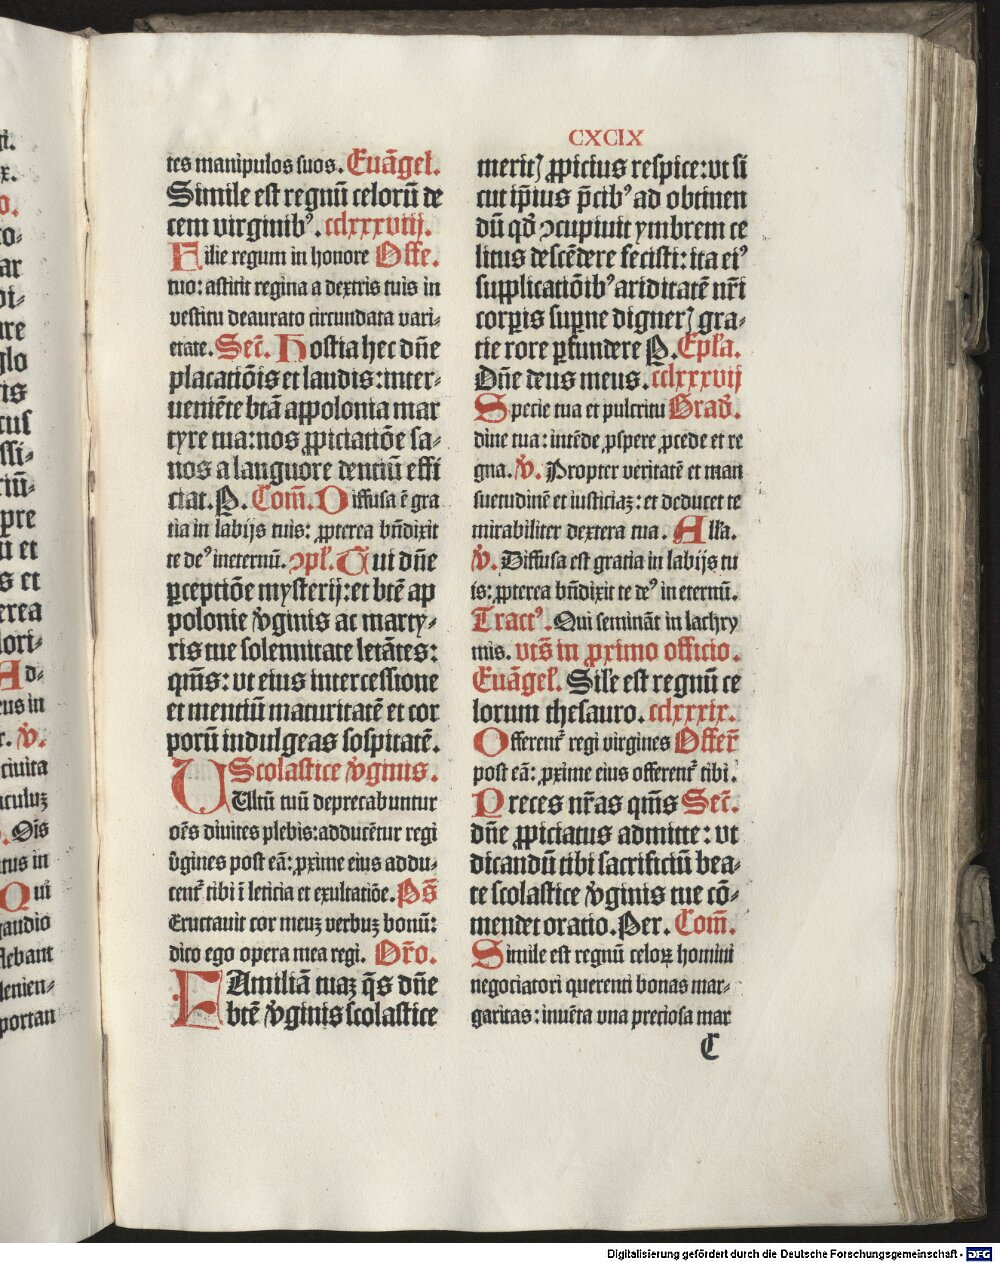 CXCIX
tes manipulos suos. Euãgel.
Simile est regnũ celorũ de
cem virginibꝰ. cclxxxviij.
Filie regum in honore Offe.
tuo: astitit regina a dextris tuis in
vestitu deaurato circundata vari-
etate. Sec̃. Hostia hec dñe
placatiõis et laudis: inter-
ueniẽte btã appolonia mar
tyre tua: nos ꝓpiciatiõe sa-
nos a languore dentiũ effi
ciat. P. Com̃. Diffusa ẽ gra
tia in labijs tuis: ꝓpterea bñdixit
te deꝰ ineternũ. ꝯpl. Tui dñe
ꝑceptiõe mysterij: et btẽ ap
polonie v̾ginis ac marty-
ris tue solennitate letãtes:
qm̃s: vt eius intercessione
et mentiũ maturitatẽ et cor
porũ indulgeas sospitatẽ.
Scolastice v̾ginis.
VUltũ tuũ deprecabuntur
oẽs diuites plebis: adducẽtur regi
v̾gines post eã: ꝓxime eius addu-
cent᷑ tibi ĩ leticia et exultatiõe. Ps̃
Eructauit cor meuꝫ verbuꝫ bonũ:
dico ego opera mea regi. Or̃o.
FAmiliã tuaꝫ q̃s dñe
btẽ v̾ginis scolastice
meritꝭ ꝓpicius respice: vt si
cut ip̃ius p̃cibꝰ ad obtinen
dũ qd̾ ꝯcupiuit ymbrem ce
litus descẽdere fecisti: ita eiꝰ
supplicatiõibꝰ ariditatẽ nr̃i
corꝑis suꝑne dignerꝭ gra-
tie rore ꝑfundere P. Ep̃la.
Dñe deus meus. cclxxxvij
Specie tua et pulcritu Grad̾.
dine tua: intẽde ꝓspere ꝓcede et re
gna. v̾. Propter veritatẽ et man
suetudinẽ et iusticiaꝫ: et deducet te
mirabiliter dextera tua. Alla.
v̾. Diffusa est gratia in labijs tu
is: ꝓpterea bñdixit te deꝰ in eternũ.
Tractꝰ. Qui seminãt in lachry
mis. vts̃ in ꝓximo officio.
Euãgel. Sile est regnũ ce
lorum thesauro. cclxxxix.
Offerent᷑ regi virgines Offer̃
post eã: ꝓxime eius offerent᷑ tibi.
Preces nr̃as qm̃s Sec̃.
dñe ꝓpiciatus admitte: vt
dicandũ tibi sacrificiũ bea-
te scolastice v̾ginis tue cõ-
mendet oratio. Per. Com̃.
Simile est regnũ celoꝝ homini
negociatori querenti bonas mar-
garitas: inuẽta vna preciosa mar
C
Digitalisierung gefördert durch die Deutsche Forschungsgemeinschaft - DFG